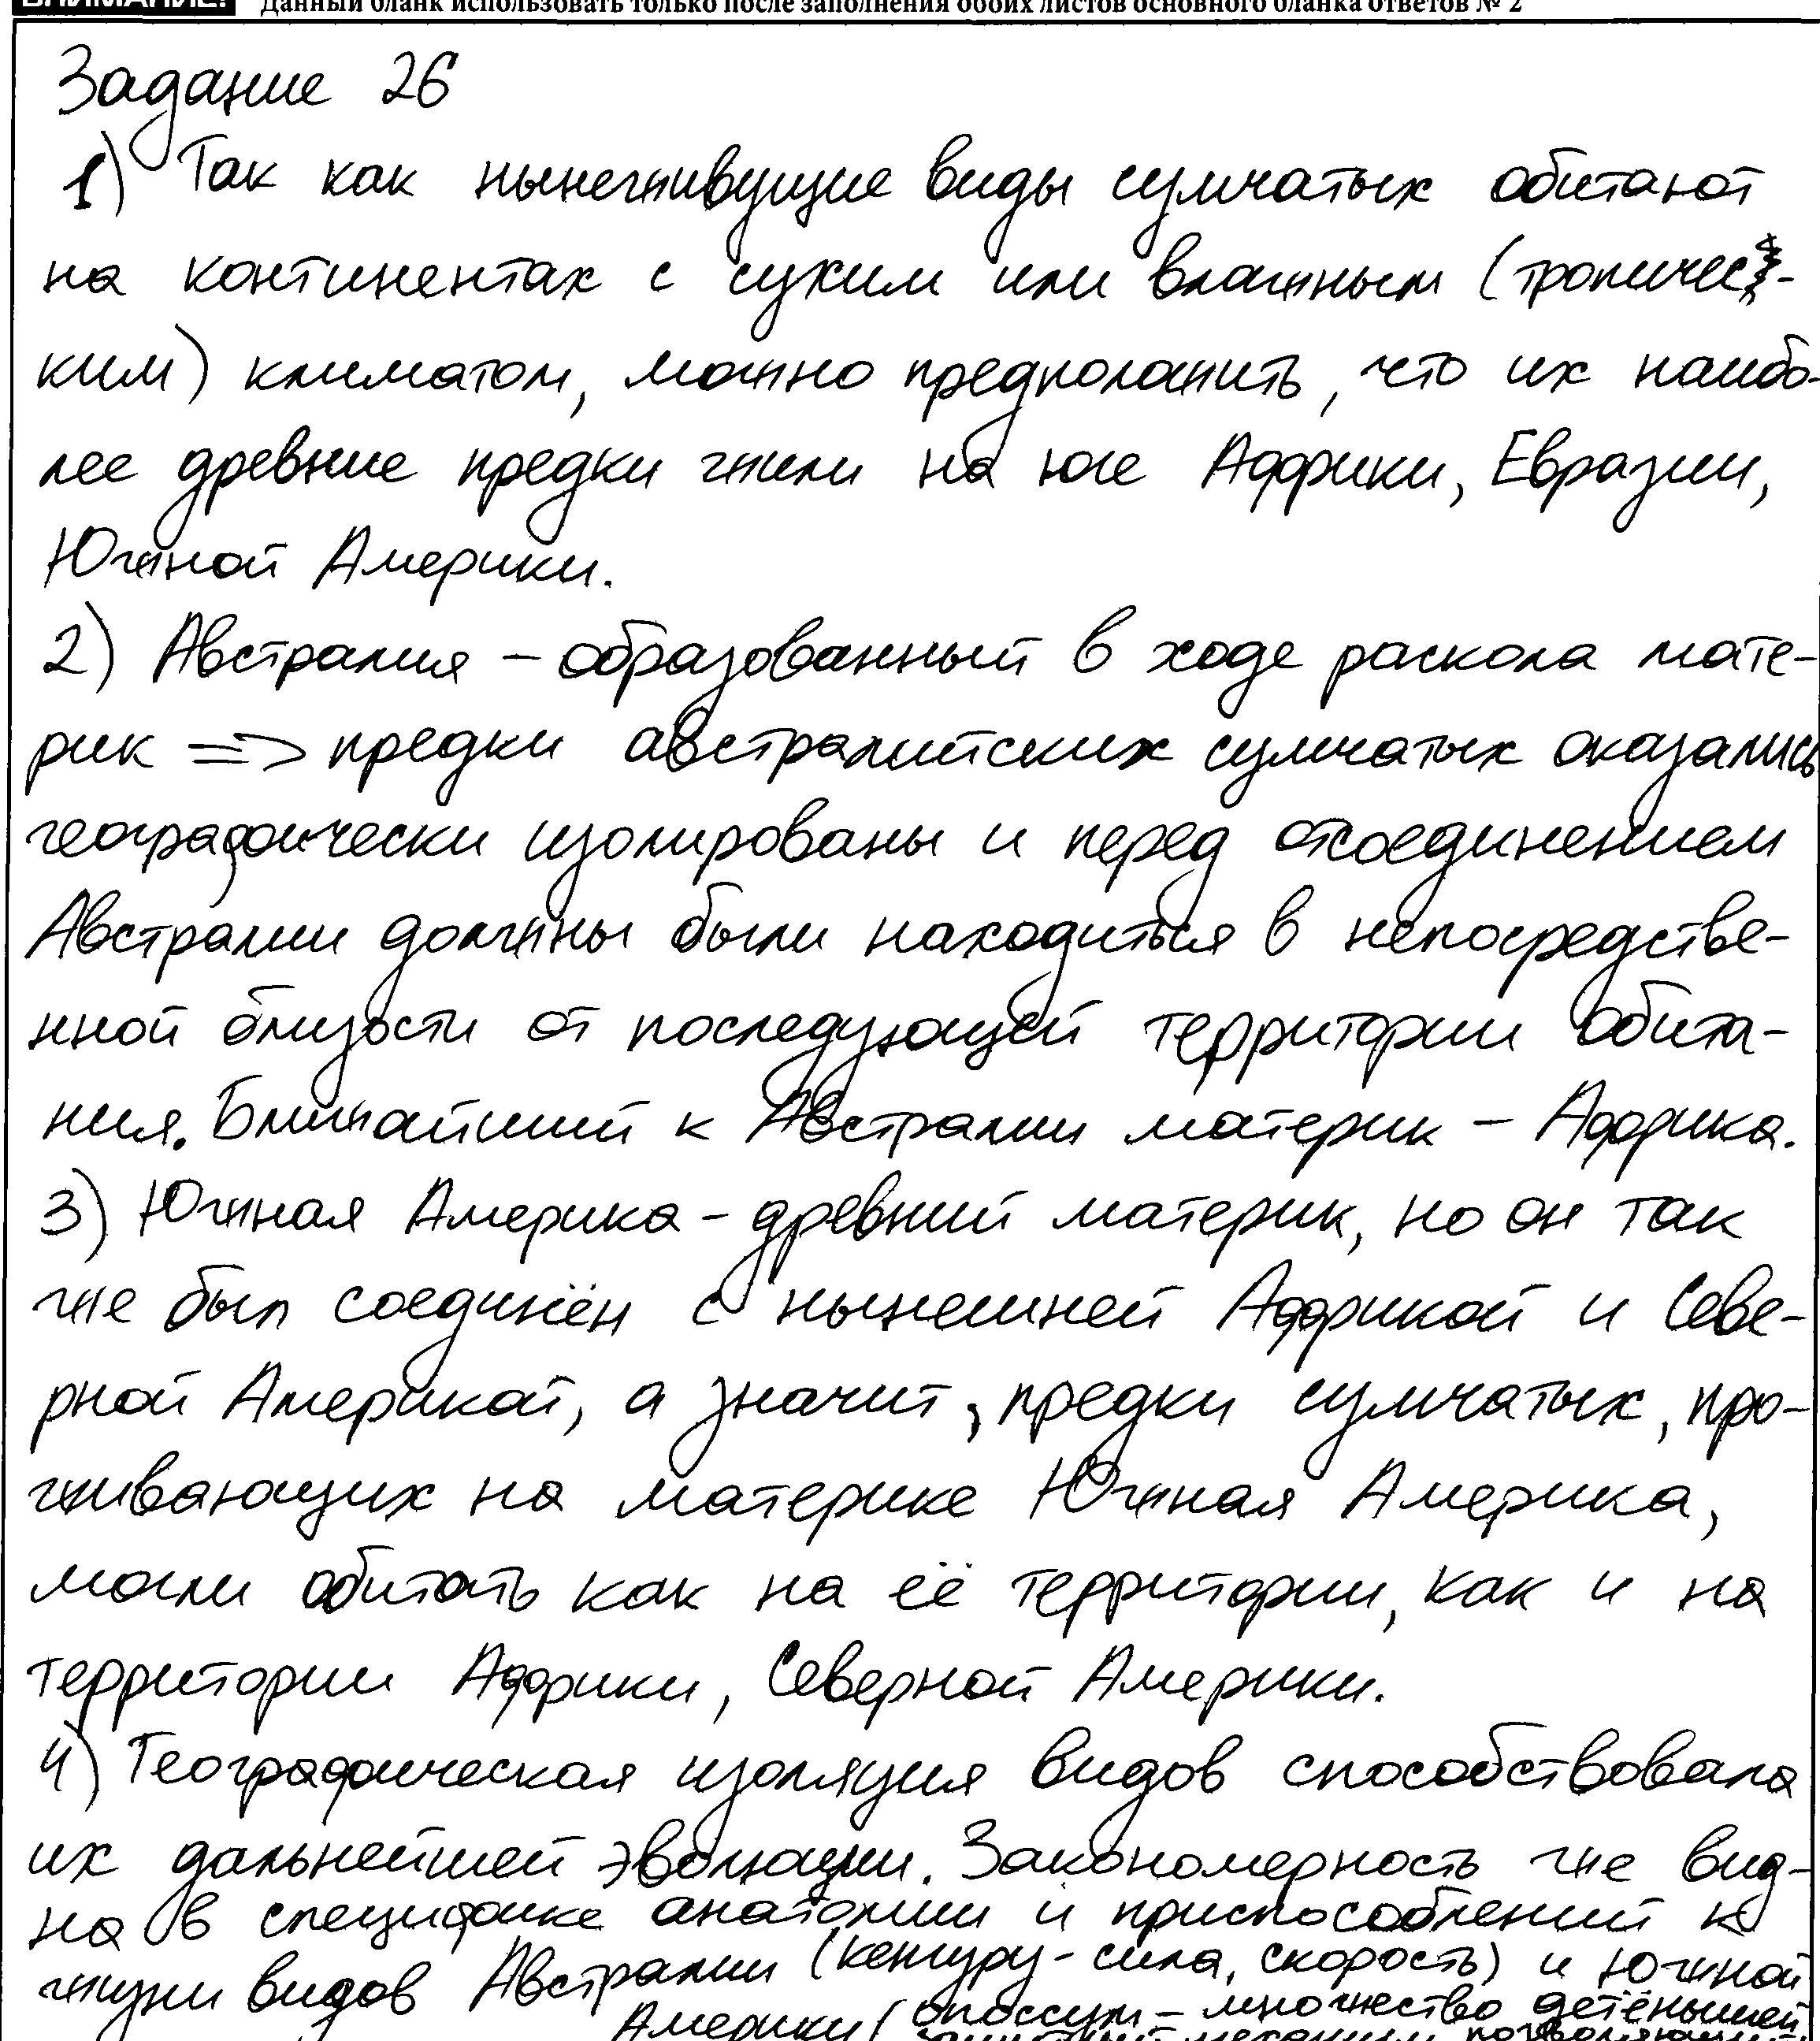 ВНИМАНИЕ! Данный бланк использовать только после заполнения обоих листов основного бланка ответов № 2
Задание 26
1) Так как нынеживущие виды сумчатых обитают
на континентах с сухим или влажным (тропичес-
ким) климатом, можно предположить, что их наибо-
лее древние предки жили на юге Африки, Евразии,
Южной Америки.
2) Австралия – образованный в ходе раскола мате-
рик => предки австралийских сумчатых оказались
географически изолированы и перед отсоединением
Австралии должны были находиться в непосредстве-
нной близости от последующей территории обита-
ния. Ближайший к Австралии материк – Африка.
3) Южная Америка – древний материк, но он так
же был соединён с нынешней Африкой и Севе-
рной Америкой, а значит, предки сумчатых, про-
живающих на материке Южная Америка,
могли обитать как на её территории, как и на
территории Африки, Северной Америки.
4) Географическая изоляция видов способствовала
их дальнейшей эволюции. Закономерность же вид-
на в специфике анатомии и приспособлений к
жизни видов Австралии (кенгуру – сила, скорость) и Южной
Америки (опоссум – множество детёнышей,